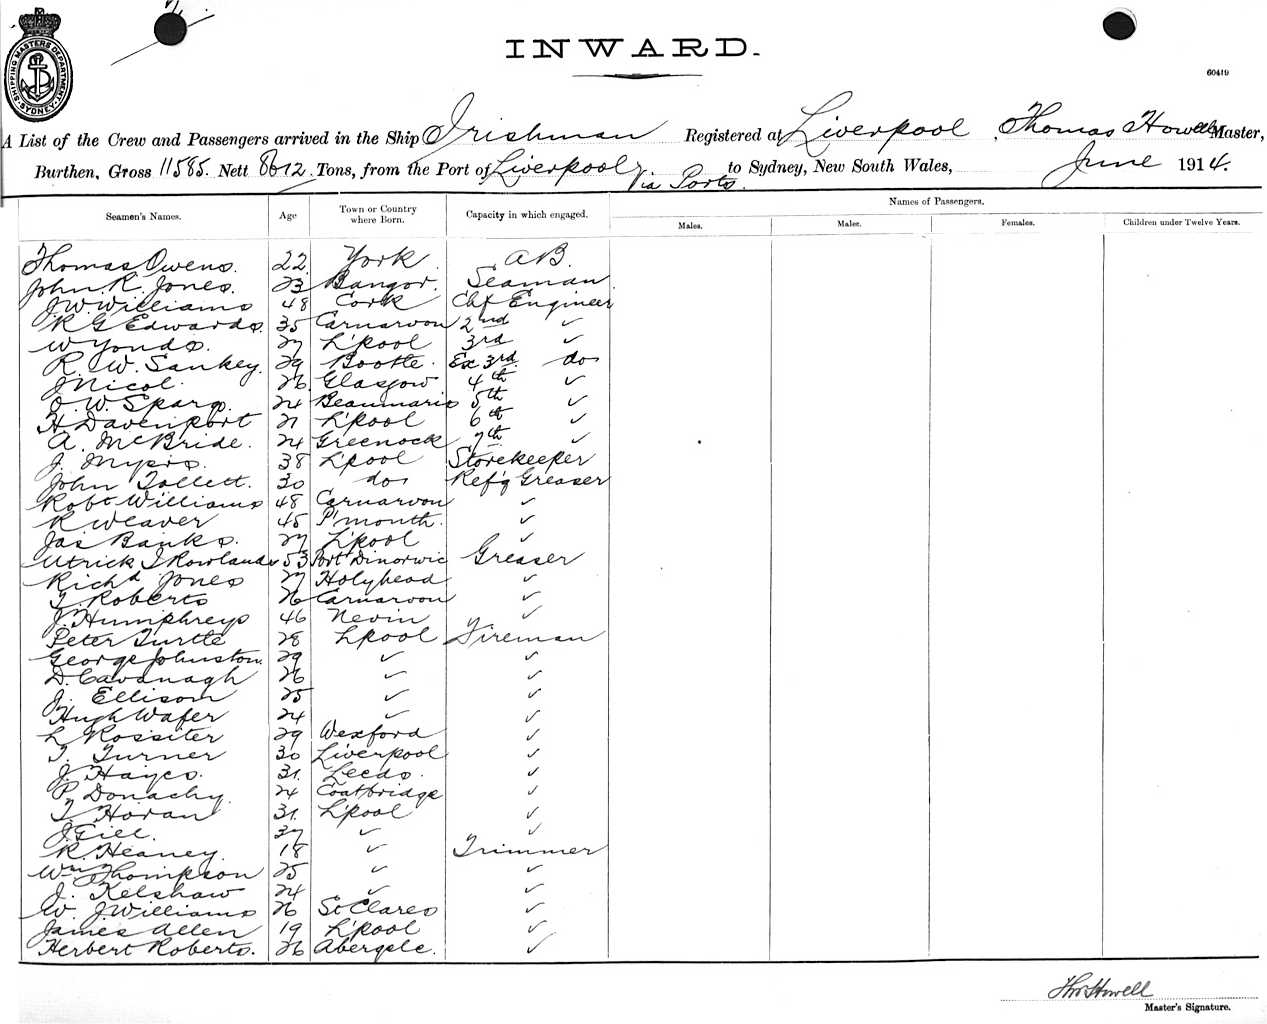 SHIPPING MASTERS DEPARTMENT SYDNEY
INWARD.
60419
A List of the Crew and Passengers arrived in the Ship Irishman Registered at Liverpool, Thomas Howell Master,
Burthen, Gross 11585. Nett 8612. Tons, from the Port of Liverpool Via Ports. to Sydney, New South Wales, June 1914.
Seamen's Names. Age Town or Country where Born. Capacity in which engaged. Names of Passengers.
Males. Males. Females. Children under Twelve Years.
Thomas Owens. 22 York A B.
John R. Jones. 23 Bangor. Seaman
J. W. Williams 48 Cork Chf Engineer
R G Edwards. 35 Carnarvon 2nd ✓
W Yonds. 27 L'pool 3rd ✓
R. W. Sankey. 29 Bootle. Ex 3rd. do
J Nicol. 26 Glasgow 4th ✓
O. W. Spargo. 24 Beaumaris 5th ✓
H Davenport 21 L'pool 6th ✓
A. McBride. 24 Greenock 7th ✓
J. Myers. 38 L'pool Storekeeper
John Tollett. 30 do Ref'g Greaser
Robt Williams 48 Carnarvon ✓
R Weaver 45 P'mouth. ✓
Jas Banks. 27 L'pool ✓
T Rowlands 53 Port Dinorwic Greaser
Richd Jones 27 Holyhead ✓
T. Roberts 26 Carnarvon ✓
J. Humphreys 46 Nevin ✓
Peter Turtle 28 L'pool Fireman
George Johnston. 29 ✓ ✓
D. Cavanagh 26 ✓ ✓
J. Ellison 25 ✓ ✓
Hugh Wafer 24 ✓ ✓
L Rossiter 29 Wexford ✓
T. Turner 30 Liverpool ✓
J. Hayes. 31. Leeds. ✓
P Donachy. 24 Coatbridge ✓
T Horan 31. L'pool ✓
J. Gill. 37 ✓ ✓
R. Heaney. 18 ✓ Trimmer
Wm Thompson 25 ✓ ✓
J. Kelshaw 24 ✓ ✓
W. J. Williams 26 St Clares ✓
James Allen 19 L'pool ✓
Herbert Roberts. 26 Abergele. ✓
Thos Howell
Master's Signature.